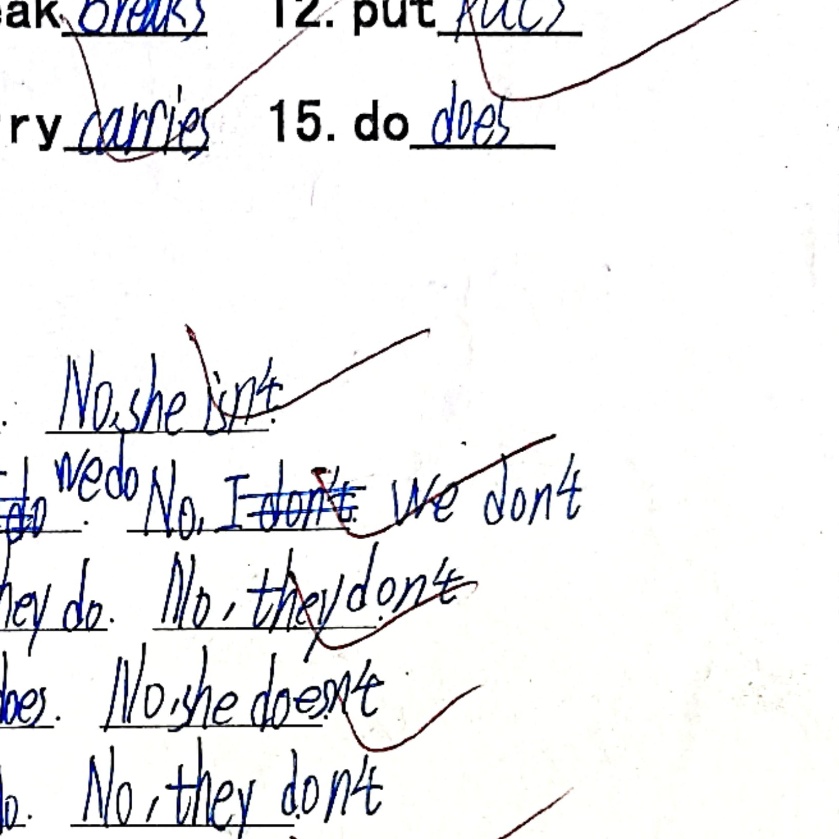 eak breaks 12. put puts
ry carries 15. do does
. No, she isn't.
do we do. No, I don't. we don't
hey do. No, they don't.
oes. No, she doesn't
o. No, they don't